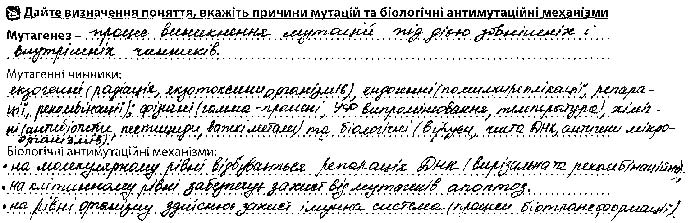 Дайте визначення поняття, вкажіть причини мутацій та біологічні антимутаційні механізми
Мутагенез – процес виникнення мутацій під дією зовнішніх і
внутрішніх чинників.
Мутагенні чинники:
екзогенні (радіація, екзотоксини організмів), ендогенні (помилки реплікації, репара-
ції, рекомбінації); фізичні (гамма-промені, УФ випромінювання, температура), хіміч-
ні (антибіотики, пестициди, важкі метали) та біологічні (віруси, чиста ДНК, антигени мікро-
організмів).
Біологічні антимутаційні механізми:
• на молекулярному рівні відбувається репарація ДНК (вирізальна та рекомбінаційна).
• на клітинному рівні забезпечує захист від мутагенів апоптоз.
• на рівні організму здійснює захист імунна система (процеси біотрансформації).